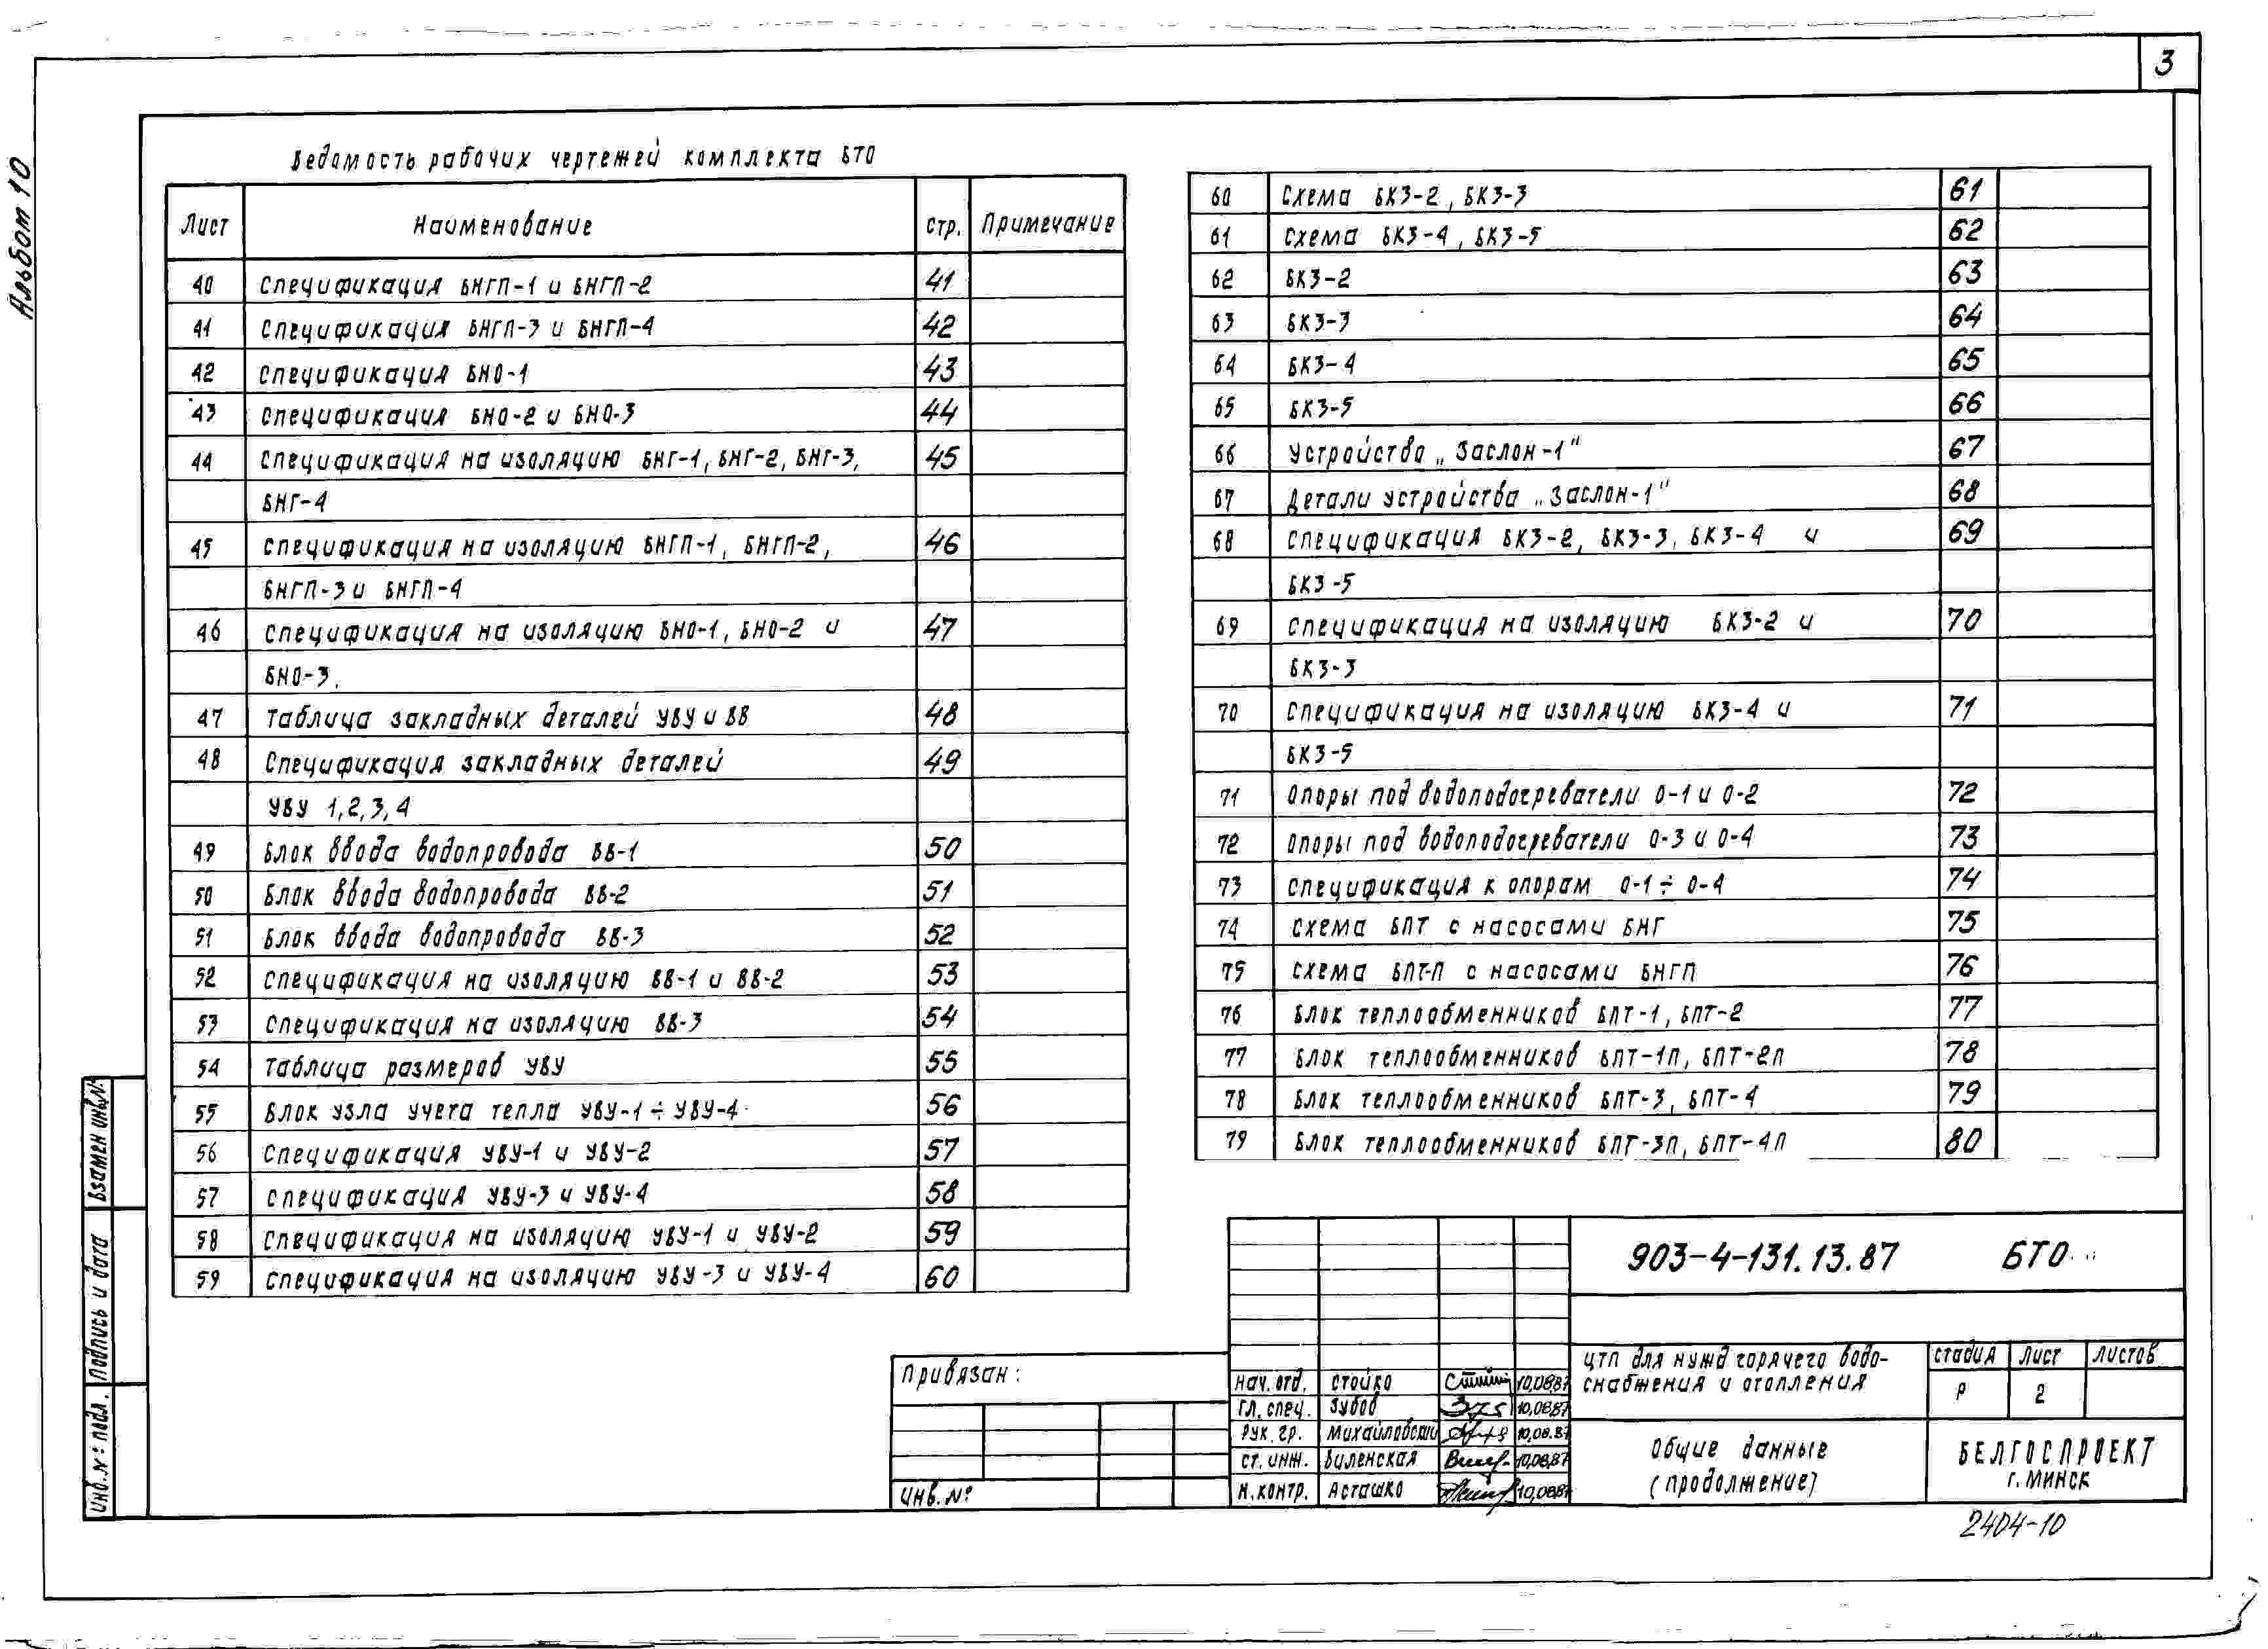 3
Альбом 10
Ведомость рабочих чертежей комплекта БТО
Лист Наименование стр. Примечание
40 Спецификация БНГП-1 и БНГП-2 41
41 Спецификация БНГП-3 и БНГП-4 42
42 Спецификация БНО-1 43
43 Спецификация БНО-2 и БНО-3 44
44 Спецификация на изоляцию БНГ-1, БНГ-2, БНГ-3, 45
БНГ-4
45 Спецификация на изоляцию БНГП-1, БНГП-2, 46
БНГП-3 и БНГП-4
46 Спецификация на изоляцию БНО-1, БНО-2 и 47
БНО-3.
47 Таблица закладных деталей УВУ и ВВ 48
48 Спецификация закладных деталей 49
УВУ 1,2,3,4
49 Блок ввода водопровода ВВ-1 50
50 Блок ввода водопровода ВВ-2 51
51 Блок ввода водопровода ВВ-3 52
52 Спецификация на изоляцию ВВ-1 и ВВ-2 53
53 Спецификация на изоляцию ВВ-3 54
54 Таблица размеров УВУ 55
55 Блок узла учета тепла УВУ-1÷УВУ-4 56
56 Спецификация УВУ-1 и УВУ-2 57
57 Спецификация УВУ-3 и УВУ-4 58
58 Спецификация на изоляцию УВУ-1 и УВУ-2 59
59 Спецификация на изоляцию УВУ-3 и УВУ-4 60
60 Схема БКЗ-2, БКЗ-3 61
61 Схема БКЗ-4, БКЗ-5 62
62 БКЗ-2 63
63 БКЗ-3 64
64 БКЗ-4 65
65 БКЗ-5 66
66 Устройство „Заслон-1“ 67
67 Детали устройства „Заслон-1“ 68
68 Спецификация БКЗ-2, БКЗ-3, БКЗ-4 и 69
БКЗ-5
69 Спецификация на изоляцию БКЗ-2 и 70
БКЗ-3
70 Спецификация на изоляцию БКЗ-4 и 71
БКЗ-5
71 Опоры под водоподогреватели О-1 и О-2 72
72 Опоры под водоподогреватели О-3 и О-4 73
73 Спецификация к опорам О-1÷О-4 74
74 Схема БПТ с насосами БНГ 75
75 Схема БПТ-П с насосами БНГП 76
76 Блок теплообменников БПТ-1, БПТ-2 77
77 Блок теплообменников БПТ-1П, БПТ-2П 78
78 Блок теплообменников БПТ-3, БПТ-4 79
79 Блок теплообменников БПТ-3П, БПТ-4П 80
Взамен инв.№
Подпись и дата
Инв.№ подл.
Привязан:
Инв. №
903-4-131.13.87 БТО
Нач. отд. Стойко 10.08.87
Гл. спец. Зубов 10.08.87
Рук. гр. Михайловский 10.08.87
Ст. инж. Виленская 10.08.87
Н. контр. Асташко 10.08.87
ЦТП для нужд горячего водо-
снабжения и отопления
Стадия Лист Листов
Р 2
Общие данные
(продолжение)
БЕЛГОСПРОЕКТ
г. Минск
2404-10